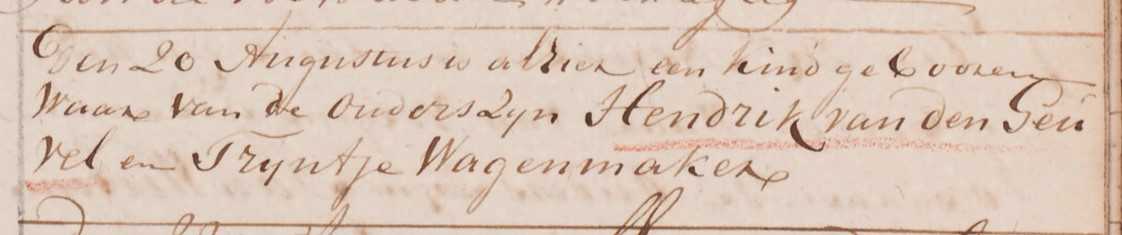 Den 20 Augustus is alhier een kind gebooren
Waar van de ouders zyn Hendrik van den Geu
vel en Tryntje Wagenmaker